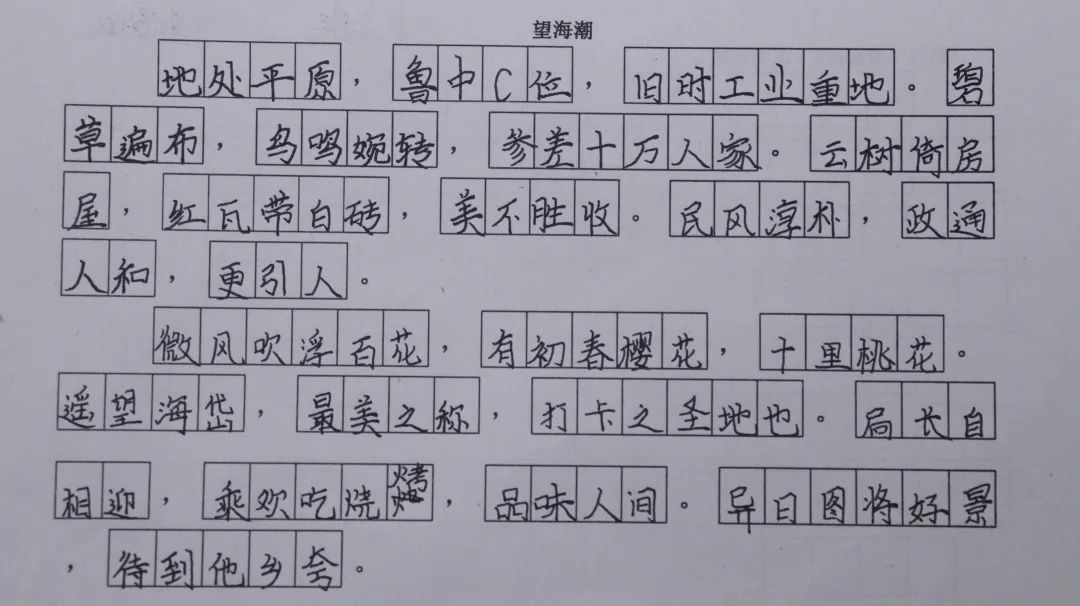 望海潮
地处平原，鲁中C位，旧时工业重地。碧
草遍布，鸟鸣婉转，参差十万人家。云树倚房
屋，红瓦带白砖，美不胜收。民风淳朴，政通
人和，更引人。
微风吹浮百花，有初春樱花，十里桃花。
遥望海岱，最美之称，打卡之圣地也。局长自
相迎，乘欢吃烧烤，品味人间。异日图将好景
，待到他乡夸。